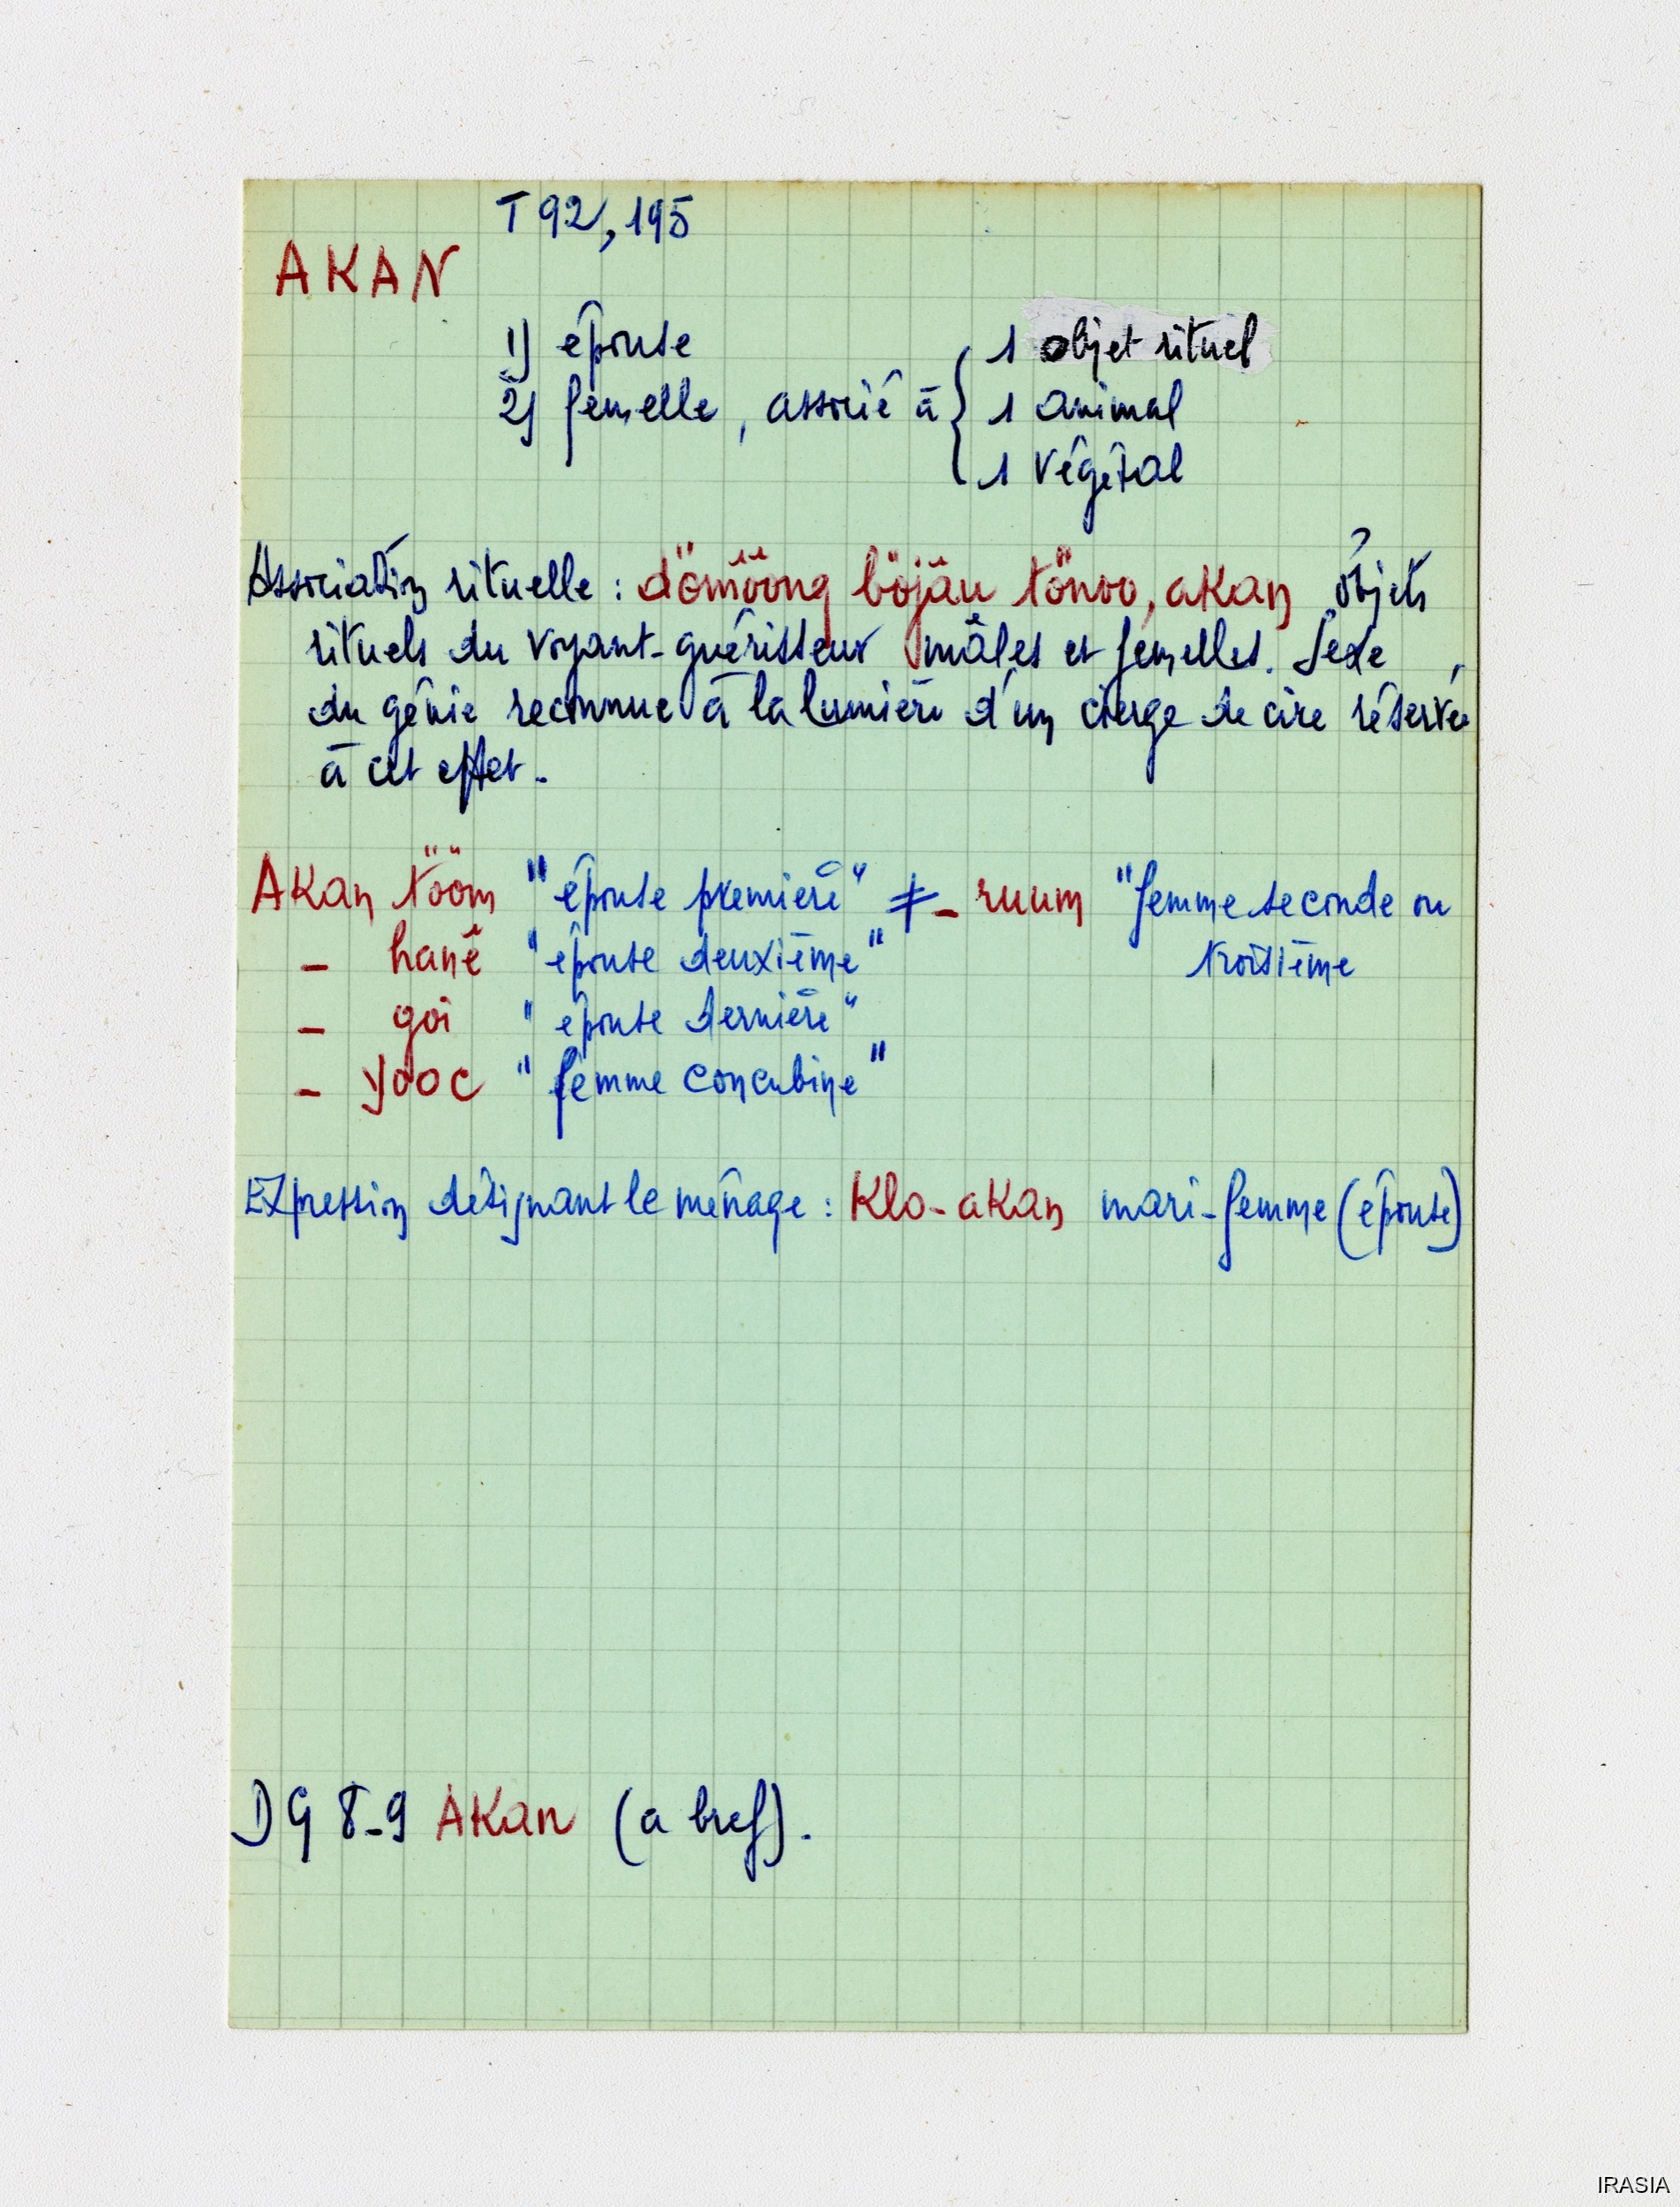 T 92, 195
AKAN
1) épouse
2) femelle, associé à { 1 objet rituel
1 animal
1 végétal
Association rituelle : dömööng böjâu tönoo, akan objets
rituels du voyant-guérisseur mâles et femelles. Sexe
du génie reconnue à la lumière d'un cierge de cire réservé
à cet effet.
Akan tööm "épouse première" ≠ - ruum "femme seconde ou
troisième
- hanê "épouse deuxième"
- goi "épouse dernière"
- yooc "femme concubine"
Expression désignant le ménage : Klo-akan mari-femme (épouse)
DG 8-9 Akan (a bref).
IRASIA